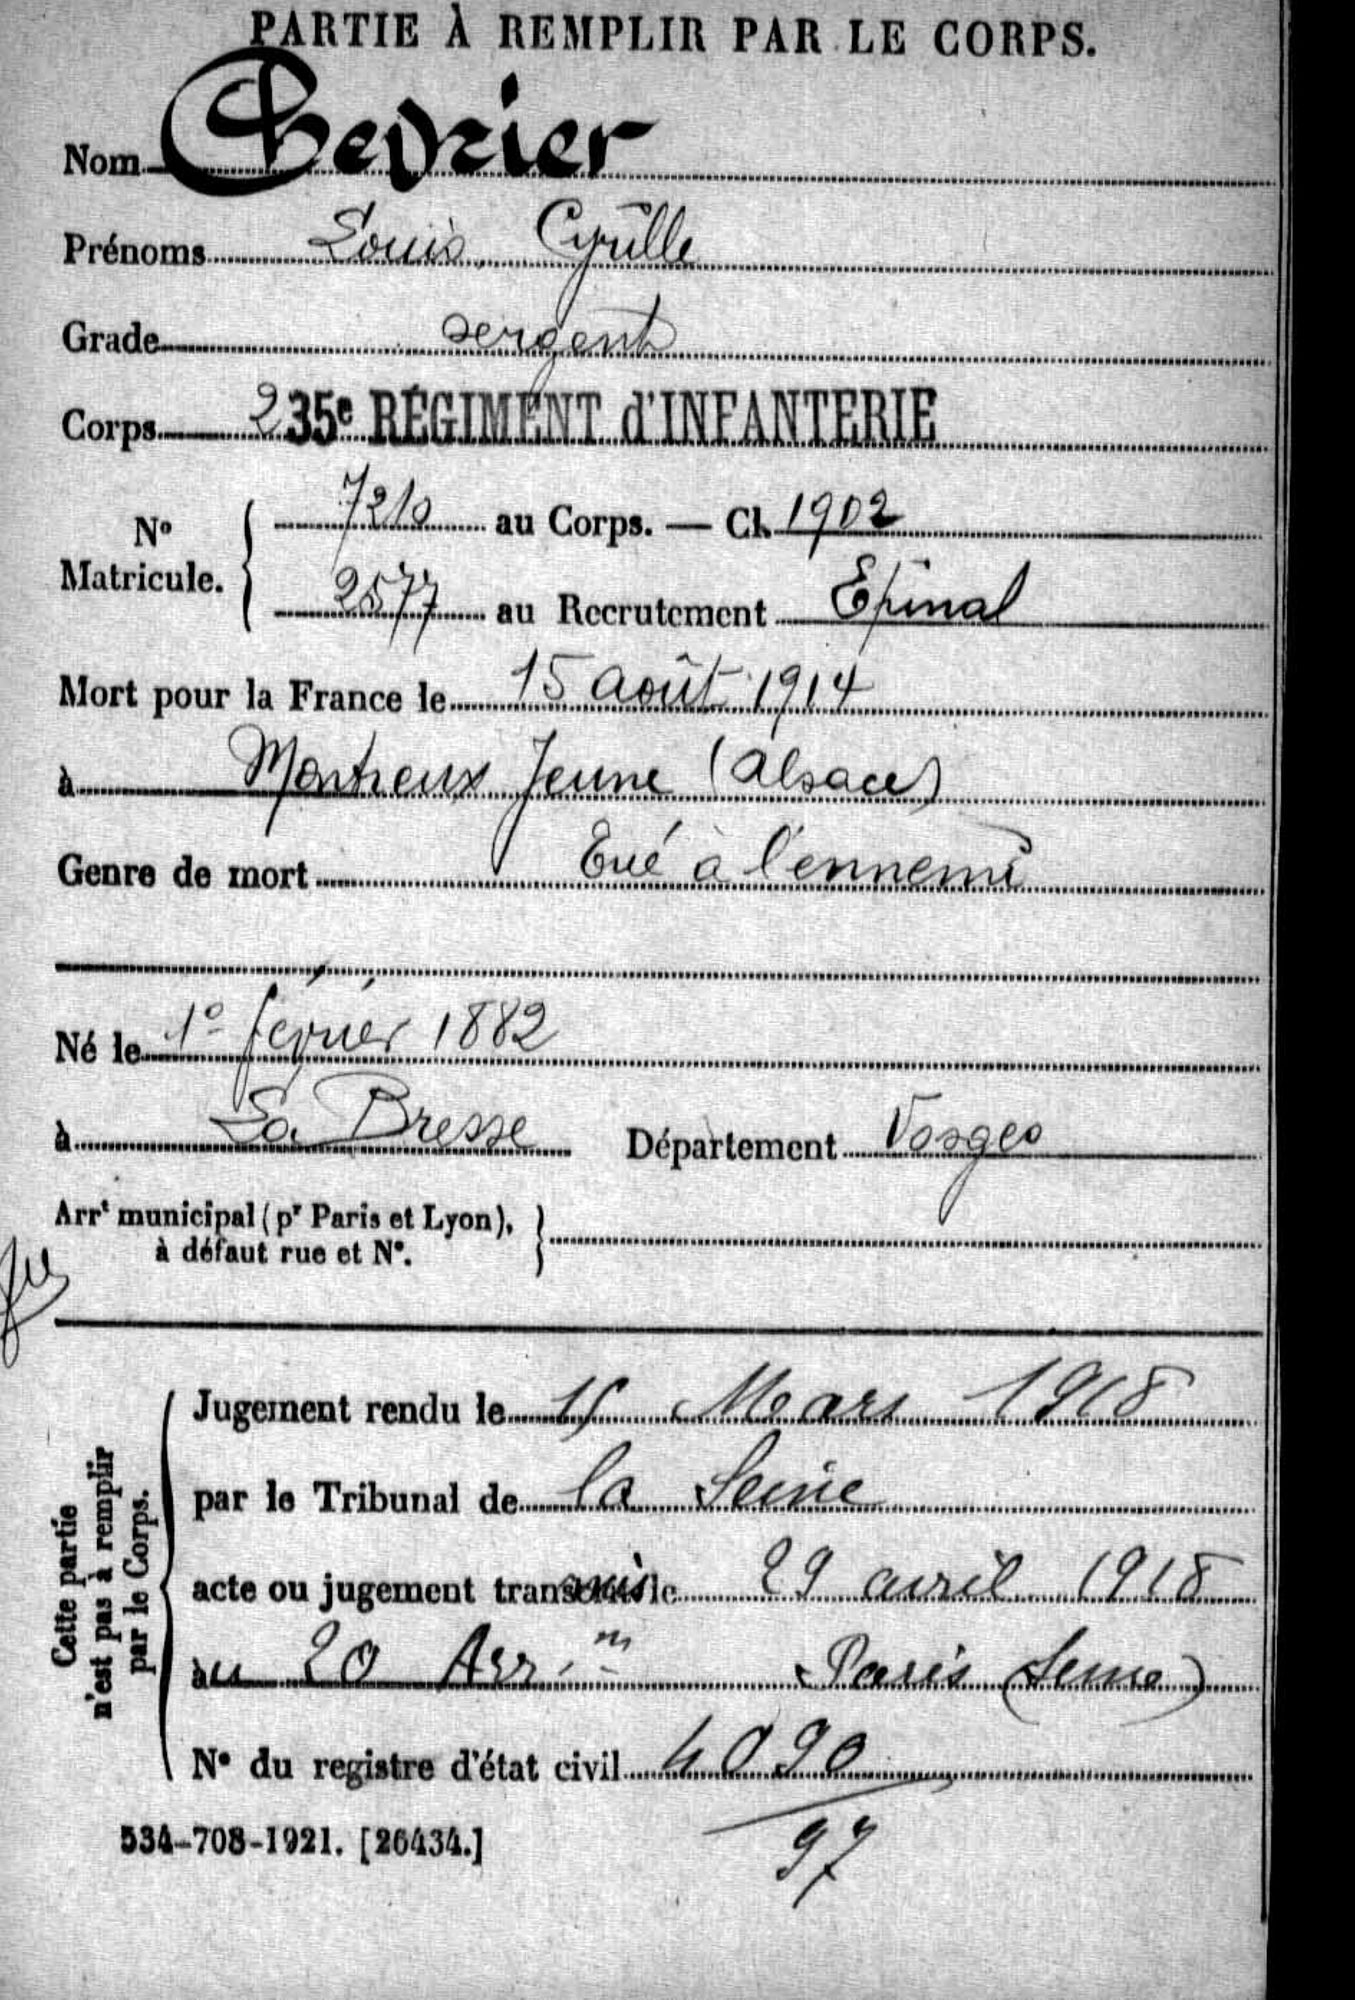 PARTIE À REMPLIR PAR LE CORPS.
Nom Chevrier
Prénoms Louis, Cyrille
Grade sergent
Corps 235e RÉGIMENT d'INFANTERIE
N° Matricule. { 7210 au Corps. — Cl. 1902
2577 au Recrutement Epinal
Mort pour la France le 15 août 1914
à Montreux Jeune (Alsace)
Genre de mort Tué à l'ennemi
Né le 1° février 1882
à La Bresse Département Vosges
Arrt municipal (pr Paris et Lyon), }
à défaut rue et N°.
Cette partie
n'est pas à remplir
par le Corps.
Jugement rendu le 15 Mars 1918
par le Tribunal de la Seine
acte ou jugement transmis le 29 avril 1918
au 20 Arr.m Paris (Seine)
N° du registre d'état civil 4090
97
534-708-1921. [26434.]